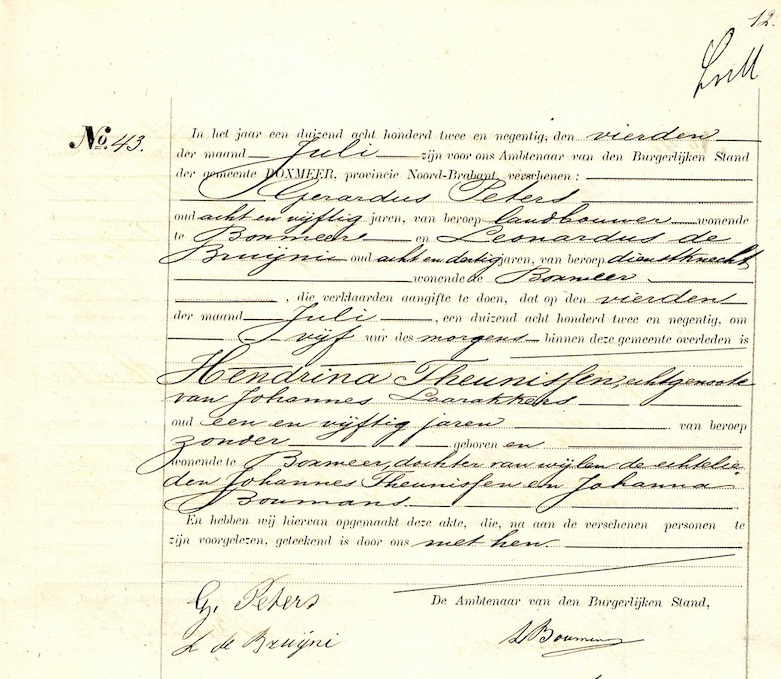 12.
No. 43.
In het jaar een duizend acht honderd twee en negentig, den vierden
der maand Juli zijn voor ons Ambtenaar van den Burgerlijken Stand
der gemeente BOXMEER, provincie Noord-Brabant, verschenen:
Gerardus Peters
oud acht en vijftig jaren, van beroep landbouwer wonende
te Boxmeer en Leonardus de
Bruijni oud acht en dertig jaren, van beroep dienstknecht,
wonende te Boxmeer
, die verklaarden aangifte te doen, dat op den vierden
der maand Juli, een duizend acht honderd twee en negentig, om
vijf uur des morgens binnen deze gemeente overleden is
Hendrina Theunissen, echtgenoote
van Johannes Laarakkers
oud een en vijftig jaren van beroep
zonder geboren en
wonende te Boxmeer, dochter van wijlen de echtelie-
den Johannes Theunissen en Johanna
Boumans
En hebben wij hiervan opgemaakt deze akte, die, na aan de verschenen personen te
zijn voorgelezen, geteekend is door ons met hen.
G. Peters
De Ambtenaar van den Burgerlijken Stand,
L de Bruijni